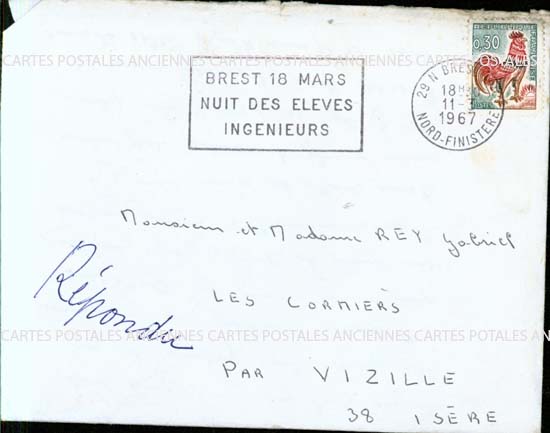 REPUBLIQUE FRANCAISE
0,30
POSTES
CARTES POSTALES ANCIENNES CARTES POSTALES ANCIENNES CARTES POSTALES
BREST 18 MARS
NUIT DES ELEVES
INGENIEURS
29 N BREST
18H
11-
1967
NORD-FINISTERE
Monsieur et Madame REY Gabriel
Répondu
LES CORMIERS
CARTES POSTALES ANCIENNES CARTES POSTALES ANCIENNES CARTES POSTALES
PAR VIZILLE
38 ISÈRE